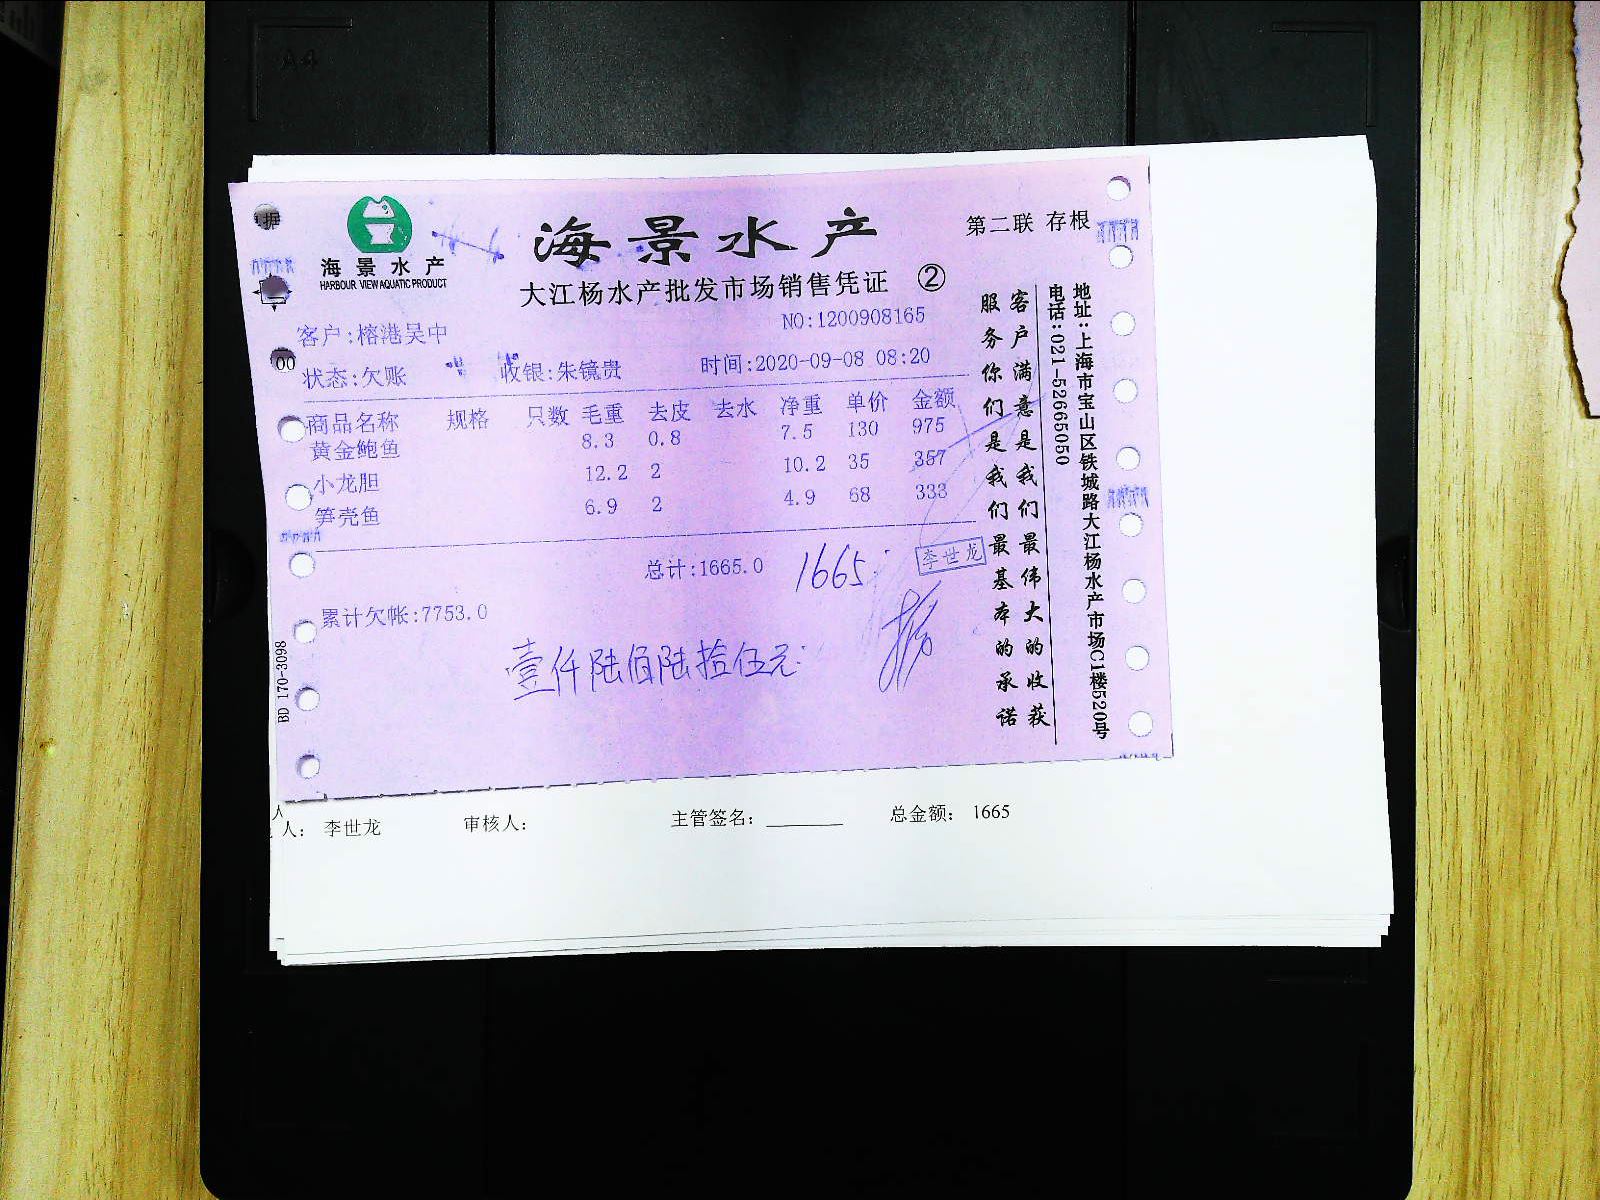 A4
海景水产
HARBOUR VIEW AQUATIC PRODUCT
海景水产
第二联 存根
大江杨水产批发市场销售凭证 ②
NO:1200908165
客户:榕港吴中
状态:欠账 收银:朱镜贵 时间:2020-09-08 08:20
商品名称 规格 只数 毛重 去皮 去水 净重 单价 金额
黄金鲍鱼 8.3 0.8 7.5 130 975
小龙胆 12.2 2 10.2 35 357
笋壳鱼 6.9 2 4.9 68 333
总计:1665.0 1665.
李世龙
累计欠帐:7753.0
壹仟陆佰陆拾伍元
客户满意是我们最伟大的收获
服务你们是我们最基本的承诺
地址:上海市宝山区铁城路大江杨水产市场C1楼520号
电话:021-52665050
BD 170-3098
据
00
人
人: 李世龙 审核人: 主管签名: 总金额: 1665